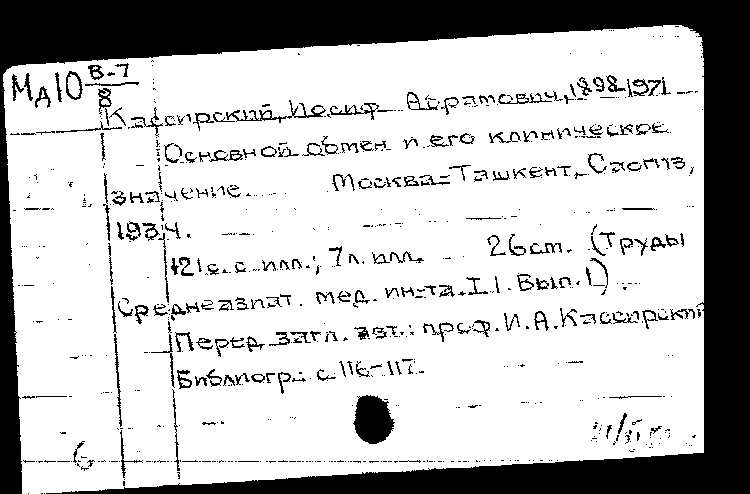 Мд10 В-7
8
Кассирский, Иосиф Абрамович, 1898-1971
Основной обмен и его клиническое
значение. Москва-Ташкент, Саогиз,
1934.
121 с. с илл.; 7 л. илл. 26 см. (Труды
Среднеазиат. мед. ин-та. I.1. Вып. 1).
Перед загл. авт.: проф. И. А. Кассирский
Библиогр.: с 116-117.
6